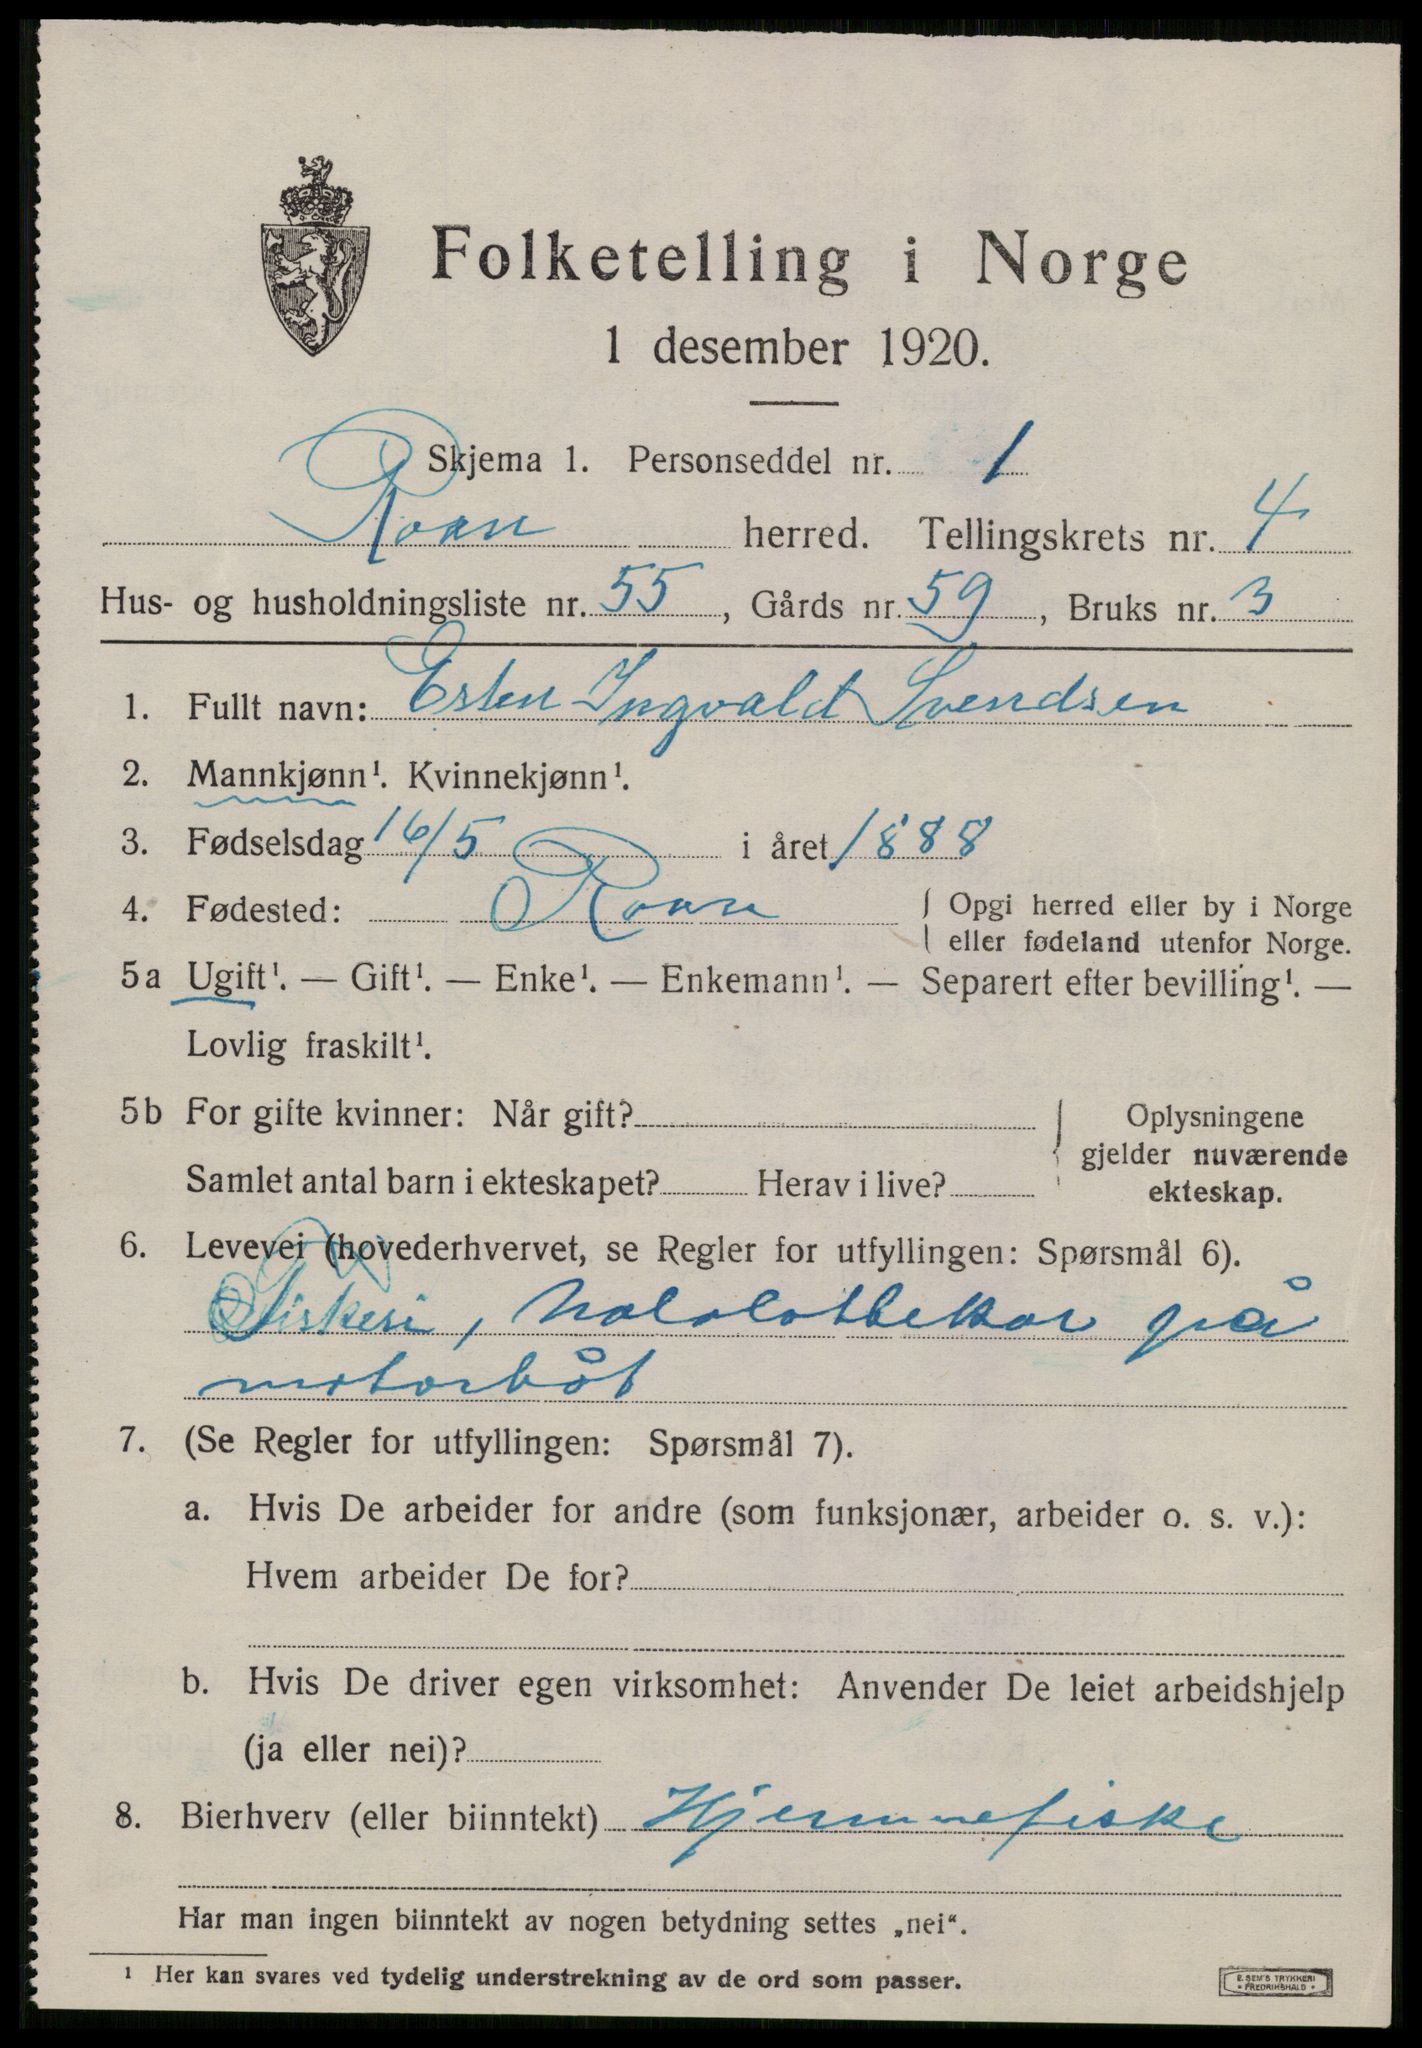 Folketelling i Norge
1 desember 1920.
Skjema 1. Personseddel nr. 1
Roan herred. Tellingskrets nr. 4
Hus- og husholdningsliste nr. 55, Gårds nr. 59, Bruks nr. 3
1. Fullt navn: Esten Ingvald Svendsen
2. Mannkjønn¹. Kvinnekjønn¹.
3. Fødselsdag 16/5 i året 1888
4. Fødested: Roan { Opgi herred eller by i Norge
eller fødeland utenfor Norge.
5a Ugift¹. — Gift¹. — Enke¹. — Enkemann¹. — Separert efter bevilling¹. —
Lovlig fraskilt¹.
5b For gifte kvinner: Når gift? Oplysningene
gjelder nuværende
Samlet antal barn i ekteskapet? Herav i live? ekteskap.
6. Levevei (hovederhvervet, se Regler for utfyllingen: Spørsmål 6).
Fiskeri, halvlottekar på
motorbåt
7. (Se Regler for utfyllingen: Spørsmål 7).
a. Hvis De arbeider for andre (som funksjonær, arbeider o. s. v.):
Hvem arbeider De for?
b. Hvis De driver egen virksomhet: Anvender De leiet arbeidshjelp
(ja eller nei)?
8. Bierhverv (eller biinntekt) Hjemmefiske
Har man ingen biinntekt av nogen betydning settes „nei“.
¹ Her kan svares ved tydelig understrekning av de ord som passer.
E. SEM'S TRYKKERI
• FREDRIKSHALD •